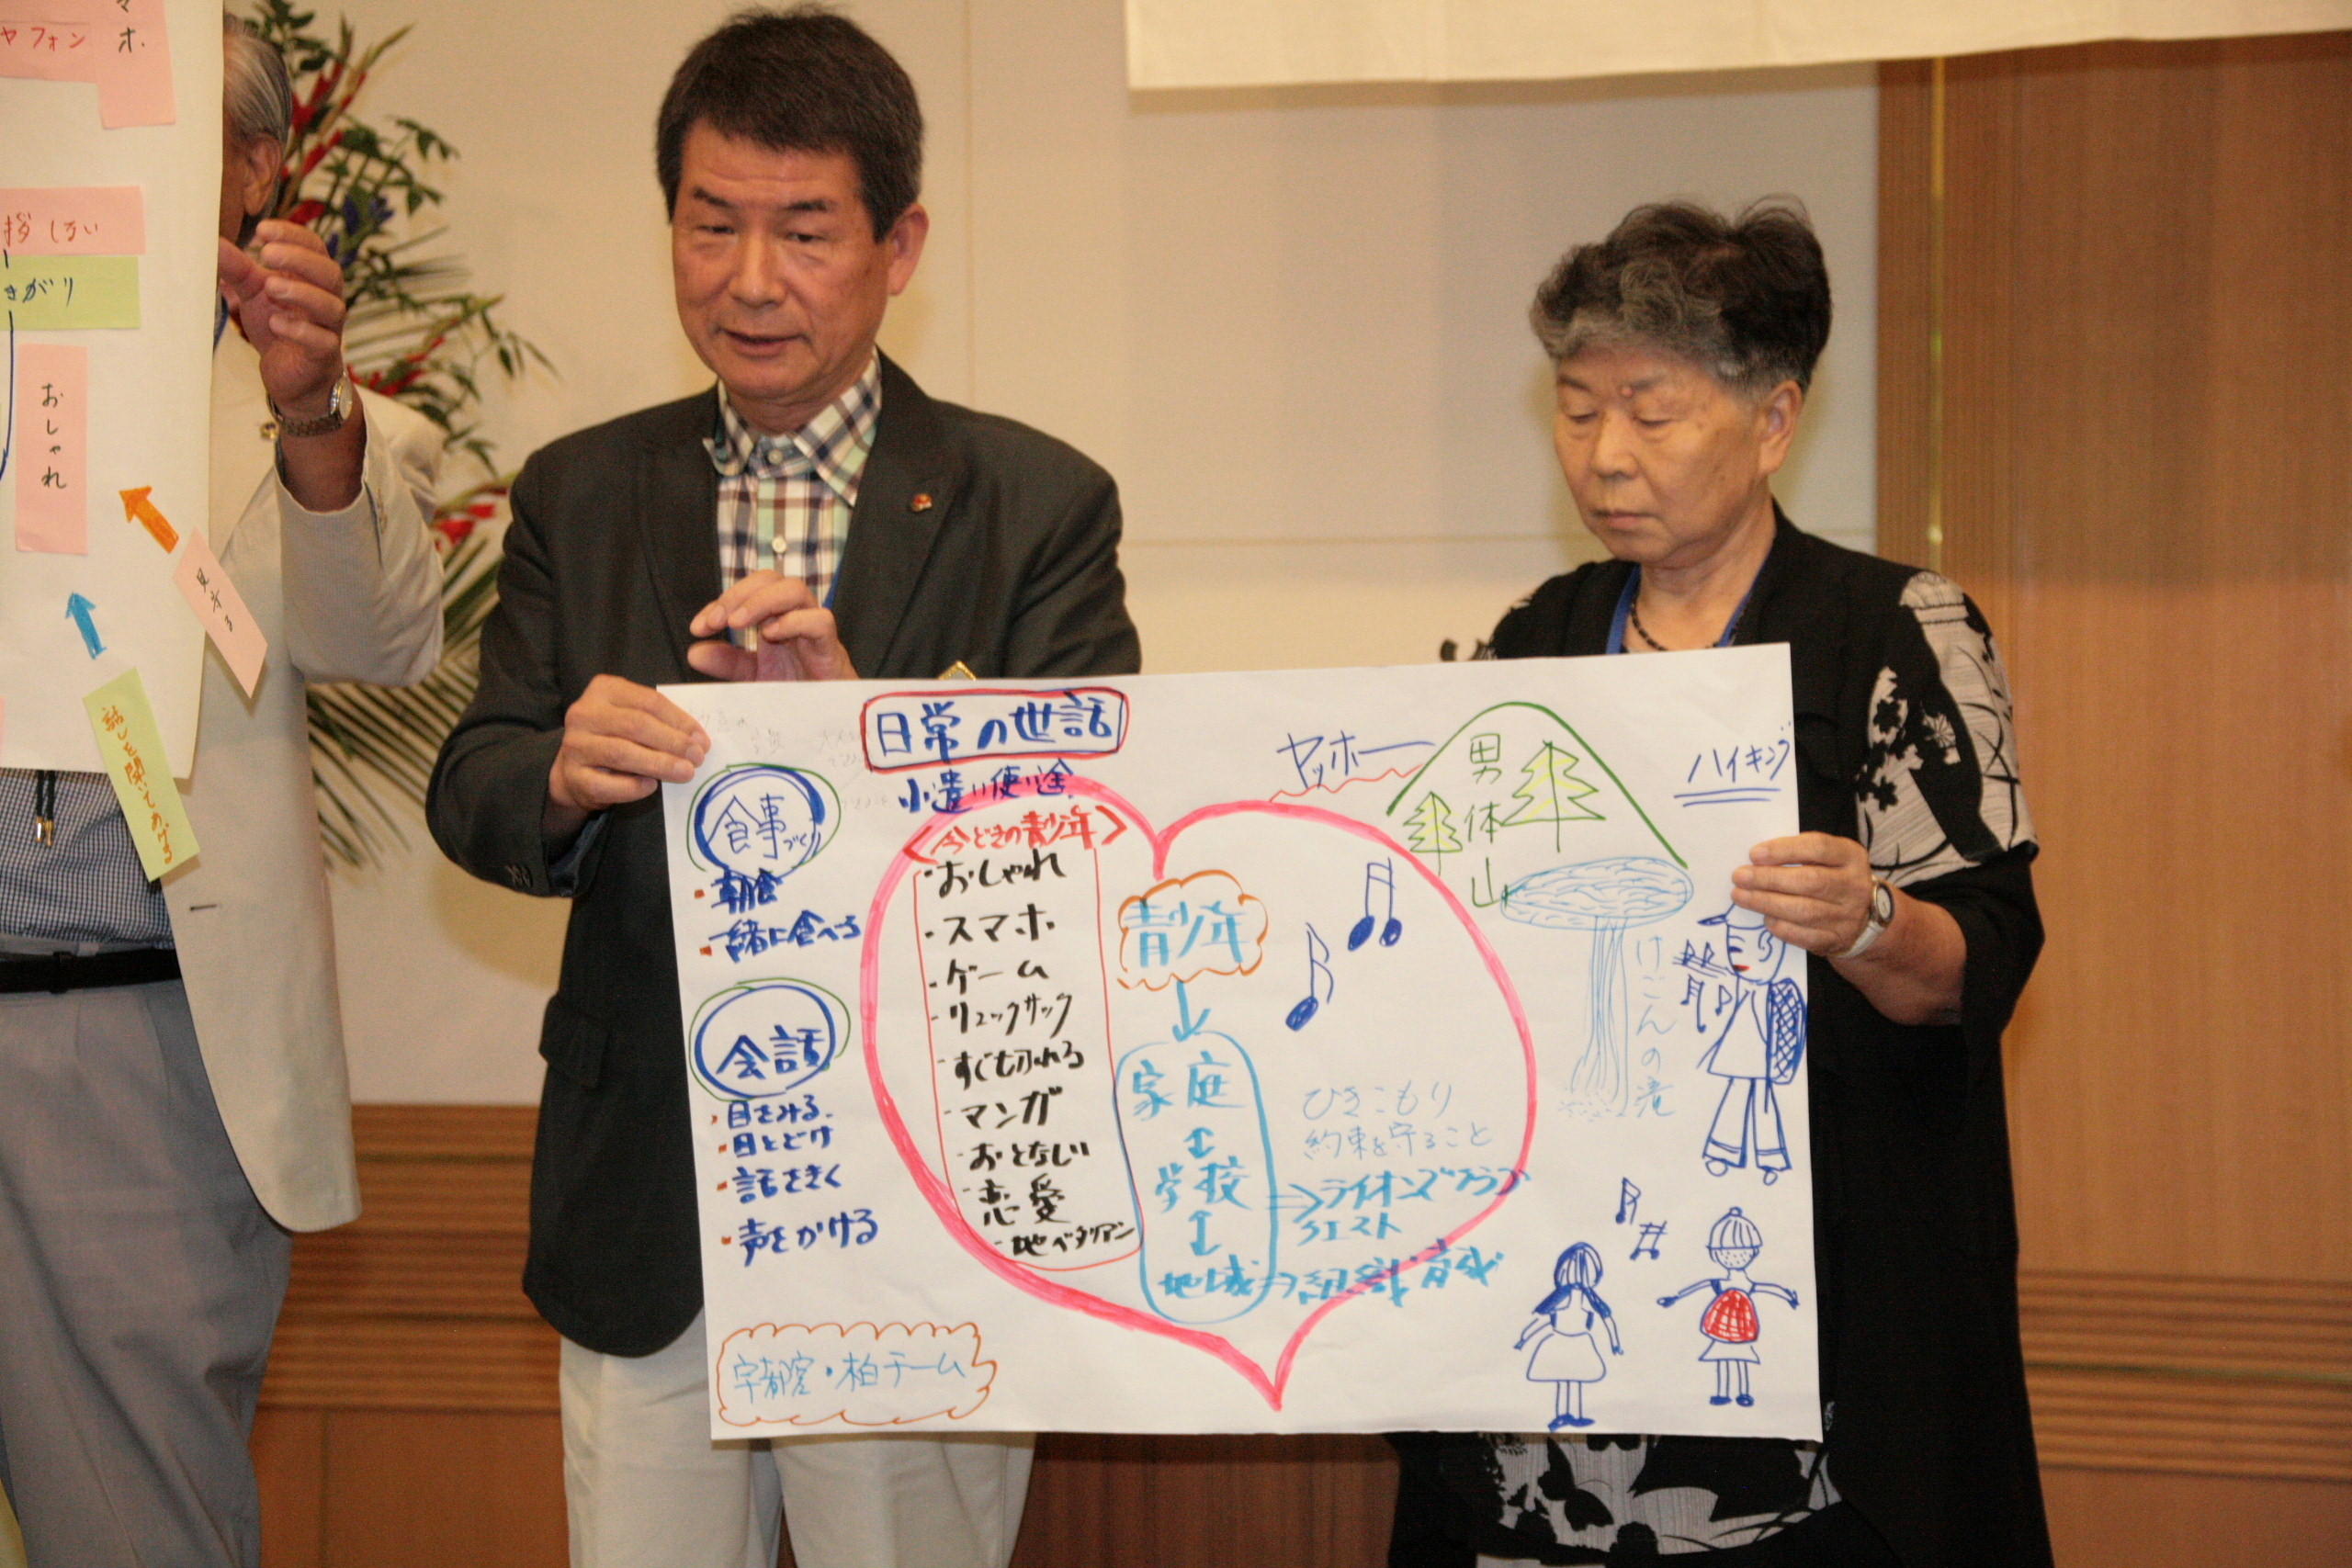 マホ
ヤフォン
拶しない
さがり
おしゃれ
見守る
話しを聞いてあげる
日常の世話
小遣い使い途
食事づくり
・朝食
・一緒に食べる
会話
・目をみる
・目とどけ
・話をきく
・声をかける
宇都宮・柏チーム
<今どきの青少年>
・おしゃれ
・スマホ
・ゲーム
・リュックサック
・すぐ切れる
・マンガ
・おとなしい
・恋愛
・地べタリアン
青少年
家庭
学校
地域→組織育成
ひきこもり
約束を守ること
ライオンズクラブ
クエスト
ヤッホー
男体山
ハイキング
けごんの滝